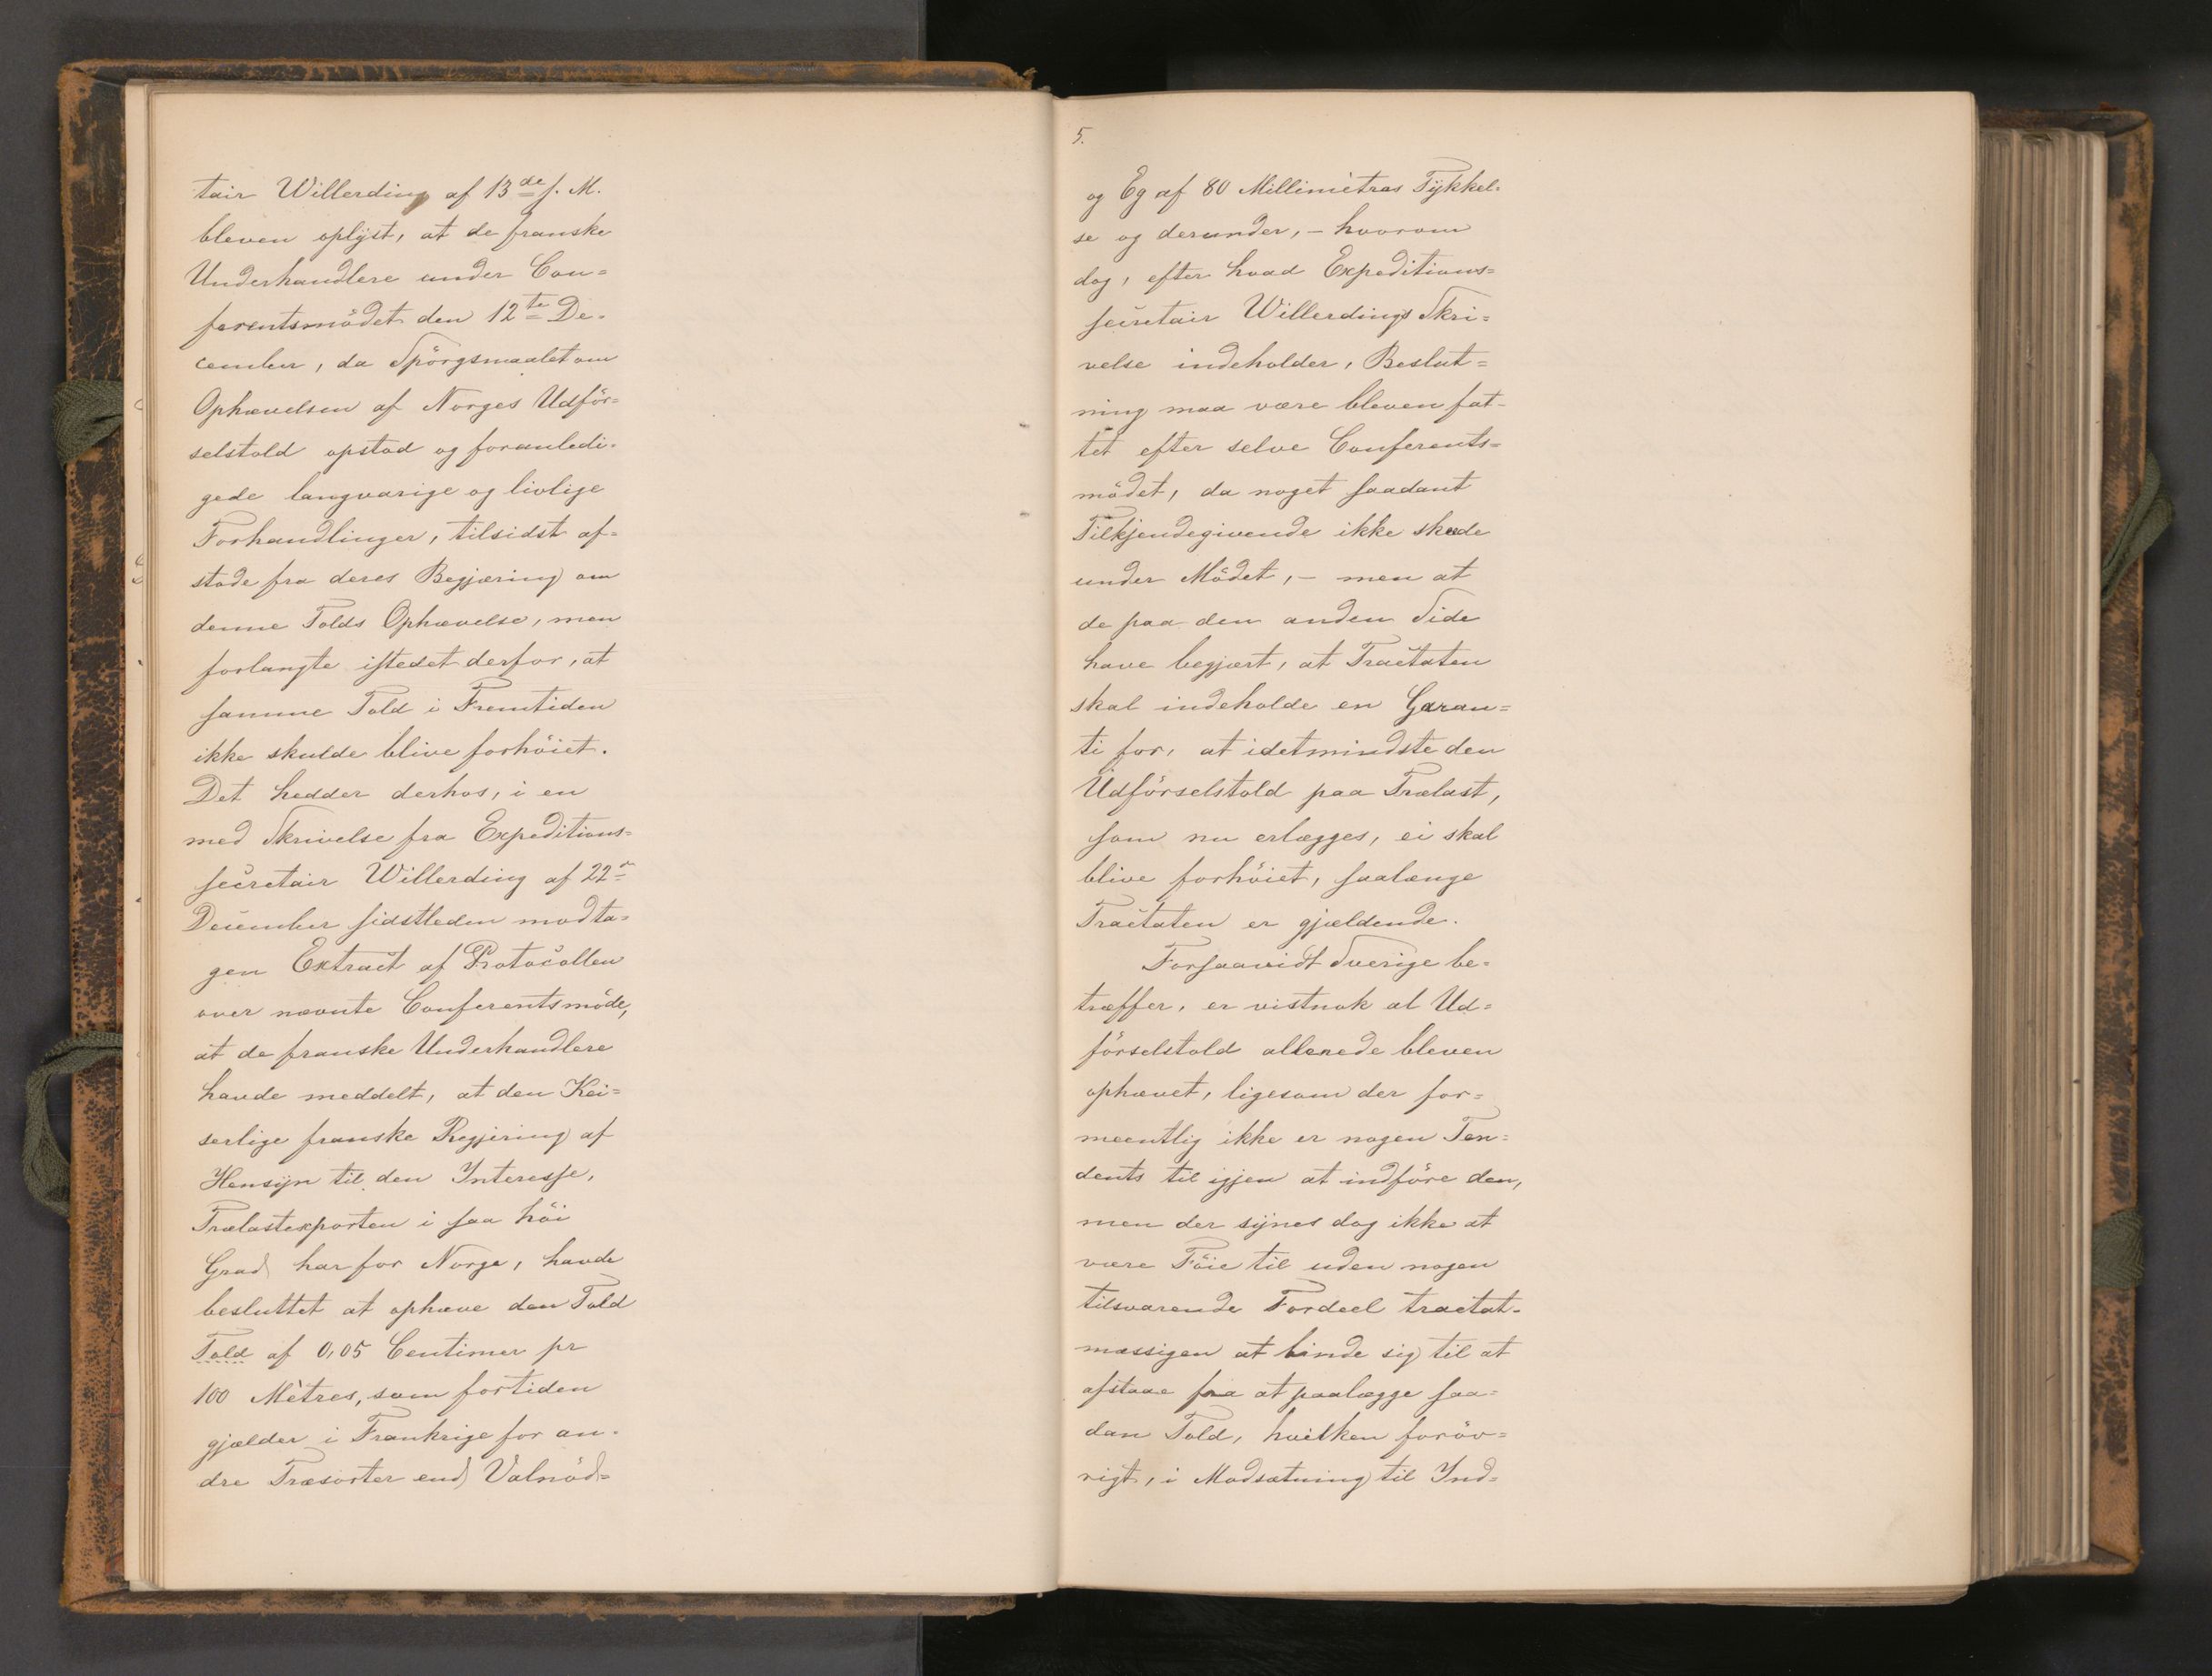 tair Willerding af 13de f. M.
bleven oplyst, at de franske
Underhandlere under Con=
ferentsmödet den 12te De=
cember, da Spörgsmaalet om
Ophævelsen af Norges Udför=
selstold opstod og foranledi=
gede langvarige og livlige
Forhandlinger, tilsidst af=
stode fra deres Begjæring om
denne Tolds Ophævelse, men
forlangte istedet derfor, at
samme Told i Fremtiden
ikke skulde blive forhöiet.
Det hedder derhos, i en
med Skrivelse fra Expeditions=
secretair Willerding af 22de
December sidstleden modta=
gen Extract af Protocollen
over nævnte Conferentsmöde,
at de franske Underhandlere
havde meddelt, at den Kei=
serlige franske Regjering af
Hensyn til den Interesse,
Trælastexporten i saa höi
Grad har for Norge, havde
besluttet at ophæve den Told
Told af 0,05 Centimer pr
100 Mètres, som fortiden
gjælder i Frankrige for an=
dre Træsorter end Valnöd=
5.
og Eg af 80 Millimètres Tykkel=
se og derunder, - hvorom
dog, efter hvad Expeditions=
secretair Willerdings Skri=
velse indeholder, Beslut=
ning maa være bleven fat=
tet efter selve Conferents=
mödet, da noget saadant
Tilkjendegivende ikke skede
under Mödet, - men at
de paa den anden Side
have begjært, at Tractaten
skal indeholde en Garan=
ti for, at idetmindste den
Udförselstold paa Trælast,
som nu erlægges, ei skal
blive forhöiet, saalænge
Tractaten er gjældende.
Forsaavidt Sverige be=
træffer, er vistnok al Ud=
förselstold allerede bleven
ophævet, ligesom der for=
meentlig ikke er nogen Ten=
dents til igjen at indföre den,
men der synes dog ikke at
være Föie til uden nogen
tilsvarende Fordeel tractat=
mæssigen at binde sig til at
afstaae fra at paalægge saa=
dan Told, hvilken foröv=
rigt, i Modsætning til Ind=